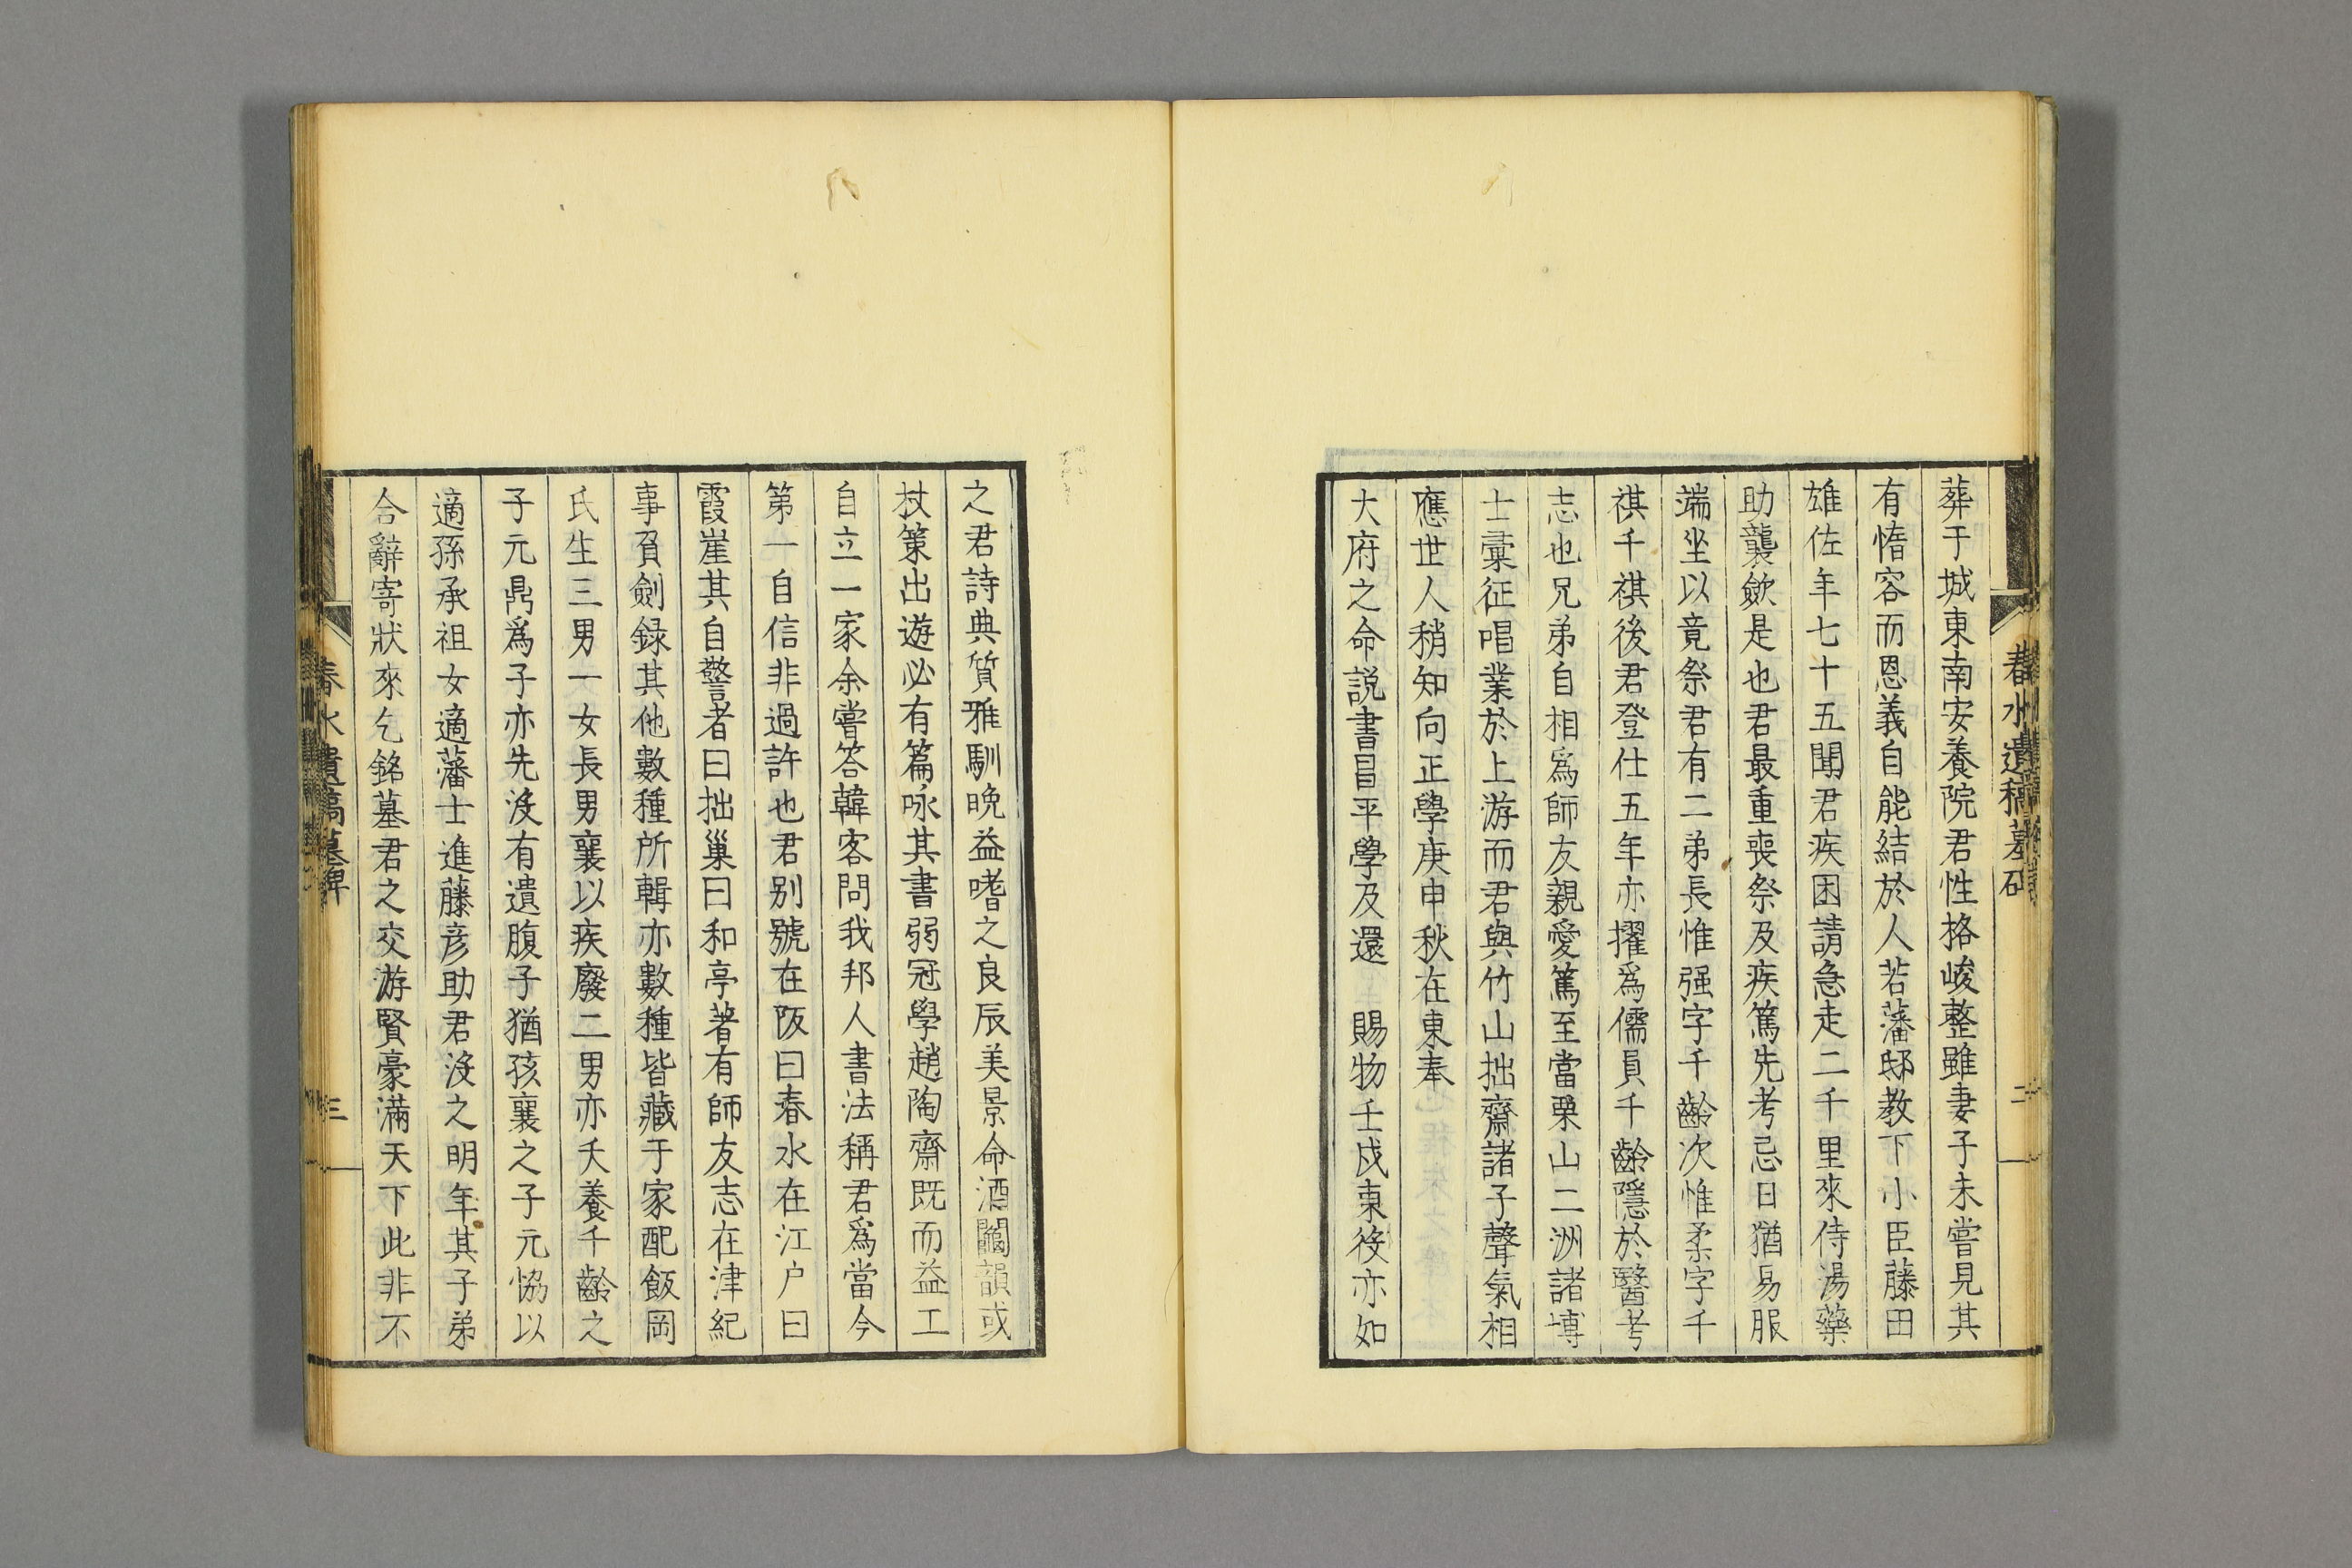 春水遺稿墓碑
二
葬于城東南安養院君性格峻整雖妻子未嘗見其
有惰容而恩義自能結於人若藩邸教下小臣藤田
雄佐年七十五聞君疾困請急走二千里來侍湯藥
助襲歛是也君最重喪祭及疾篤先考忌日猶易服
端坐以竟祭君有二弟長惟强字千齡次惟柔字千
祺千祺後君登仕五年亦擢爲儒員千齡隱於醫考
志也兄弟自相爲師友親愛篤至當栗山二洲諸博
士彙征唱業於上游而君與竹山拙齋諸子聲氣相
應世人稍知向正學庚申秋在東奉
大府之命説書昌平學及還 賜物壬戌東役亦如
之君詩典質雅馴晚益嗜之良辰美景命酒鬮韻或
杖策出遊必有篇咏其書弱冠學趙陶齋既而益工
自立一家余嘗答韓客問我邦人書法稱君爲當今
第一自信非過許也君别號在阪曰春水在江户曰
霞崖其自警者曰拙巢曰和亭著有師友志在津紀
事負劍録其他數種所輯亦數種皆藏于家配飯岡
氏生三男一女長男襄以疾廢二男亦夭養千齡之
子元鼎爲子亦先沒有遺腹子猶孩襄之子元恊以
適孫承祖女適藩士進藤彦助君沒之明年其子弟
合辭寄狀來乞銘墓君之交游賢豪滿天下此非不
春水遺稿墓碑
三